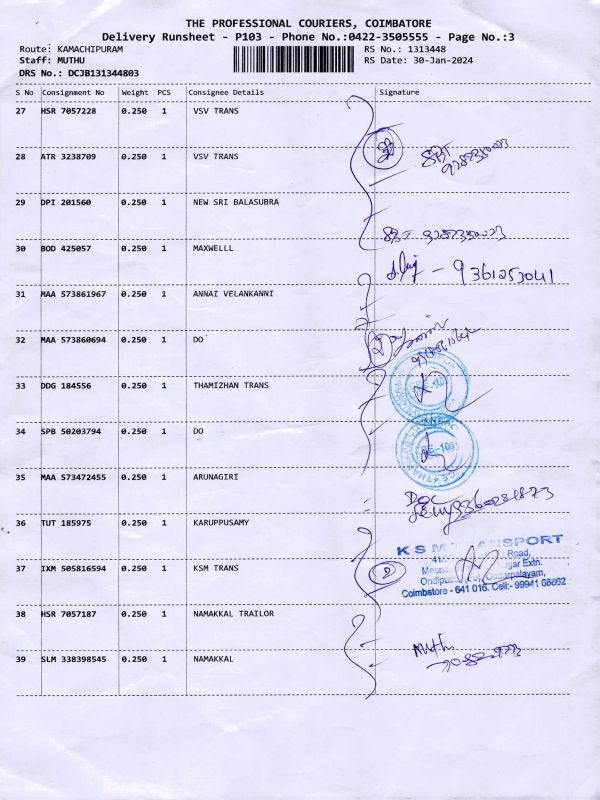 THE PROFESSIONAL COURIERS, COIMBATORE
Delivery Runsheet - P103 - Phone No.:0422-3505555 - Page No.:3
Route: KAMACHIPURAM RS No.: 1313448
Staff: MUTHU RS Date: 30-Jan-2024
DRS No.: DCJB131344803
S No Consignment No Weight PCS Consignee Details Signature
27 HSR 7057228 0.250 1 VSV TRANS
28 ATR 3238709 0.250 1 VSV TRANS
29 DPI 201560 0.250 1 NEW SRI BALASUBRA
30 BOD 425057 0.250 1 MAXWELLL
9361253041
31 MAA 573861967 0.250 1 ANNAI VELANKANNI
32 MAA 573860694 0.250 1 DO
33 DDG 184556 0.250 1 THAMIZHAN TRANS
34 SPB 50203794 0.250 1 DO
35 MAA 573472455 0.250 1 ARUNAGIRI
36 TUT 185975 0.250 1 KARUPPUSAMY
K S M TRANSPORT
Road,
37 IXM 505816594 0.250 1 KSM TRANS
Nagar Extn.
Coimbatore - 641 016. Cell:- 99941 68862
38 HSR 7057187 0.250 1 NAMAKKAL TRAILOR
39 SLM 338398545 0.250 1 NAMAKKAL